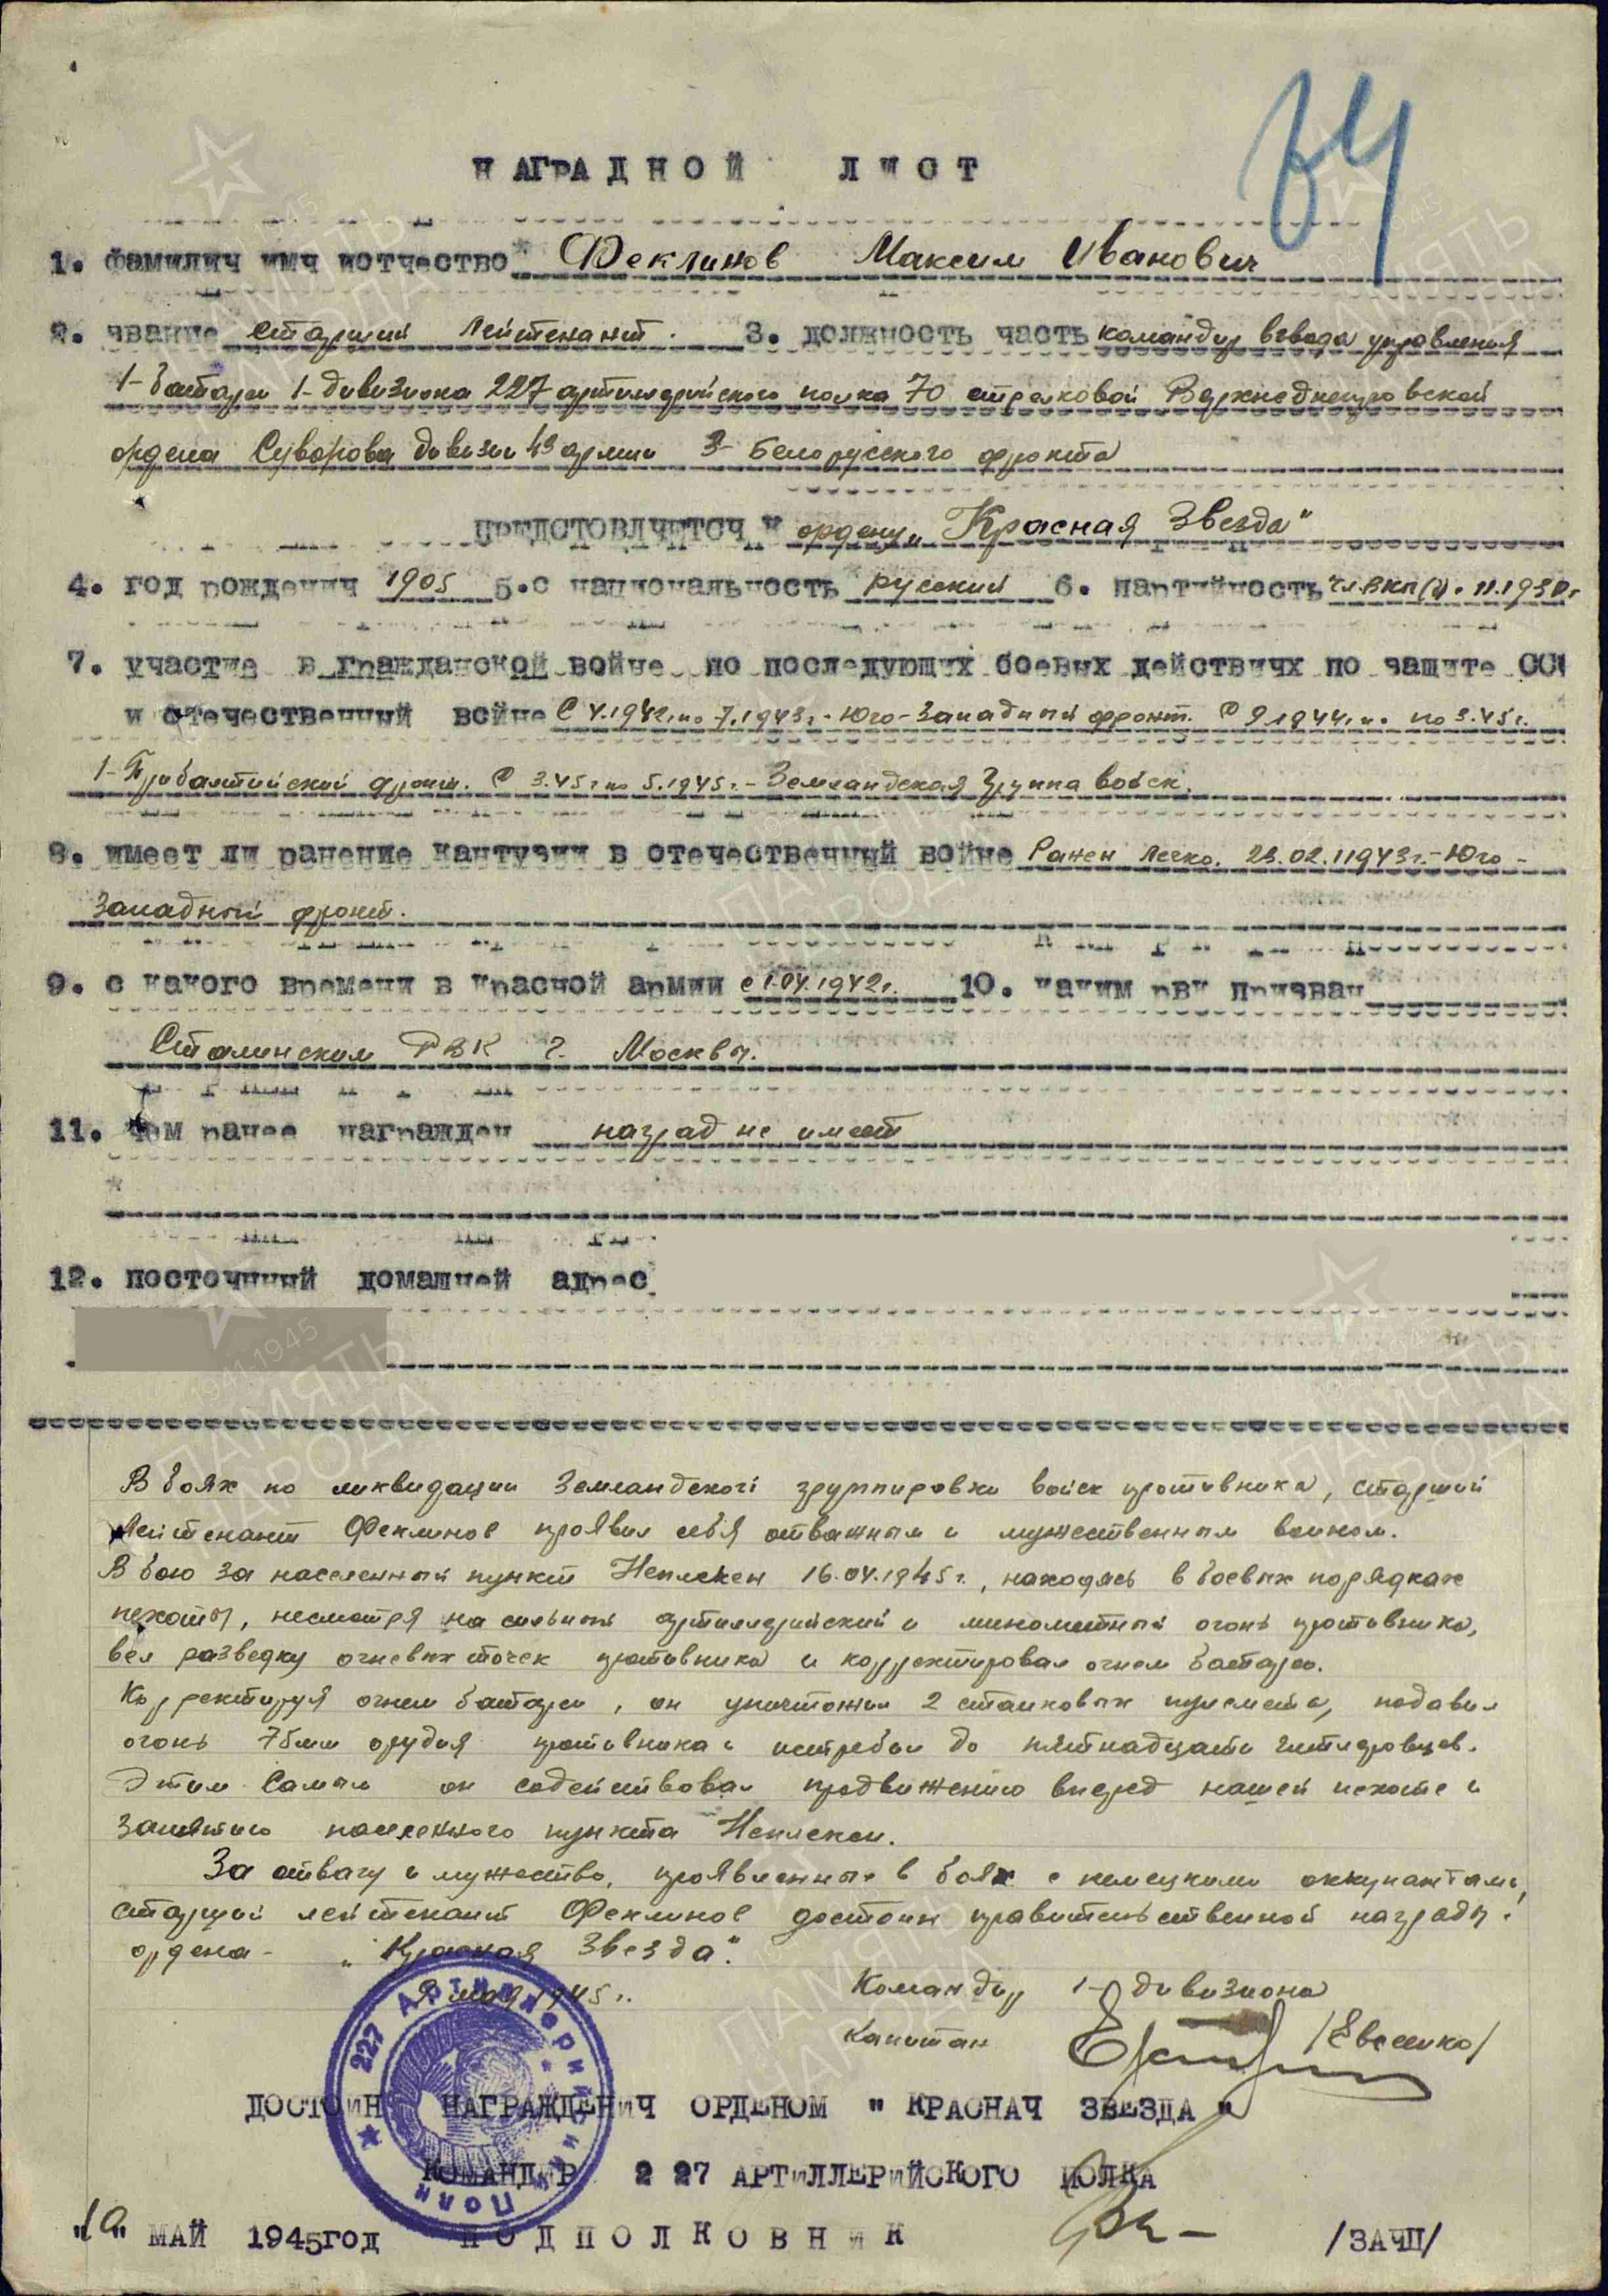 34
НАГРАДНОЙ ЛИСТ
1. фамилич имч иотчество Феклинов Максим Иванович
2. чвание старший лейтенант. 3. должность часть командир взвода управления
1-батареи 1-дивизиона 227 артиллерийского полка 70 стрелковой Верхнеднепровской
ордена Суворова дивизии 43 армии 3-Белорусского фронта
ПРЕДСТОВЛЧЕТСЧ к ордену „Красная Звезда"
4. год рожденич 1905 5.с национальность русский 6. партийность чл.ВКП(б). 11.1930г
7. участие в гражданской войне по последующих боевых действичх по чащите ССС
и отечественный войне С 4.1942г. по 7.1943г.-Юго-Западный фронт. С 9.1944г. по 3.45г.
1-Прибалтийский фронт. С 3.45г по 5.1945г.-Земландская Группа войск.
8. имеет ли ранение кантучии в отечественный войне Ранен легко. 23.02.11943г.-Юго-
Западный фронт.
9. с какого времени в красной армии с 1.04.1942г. 10. каким рвк причван
Сталинским РВК г. Москвы.
11. чем ранее награжден наград не имеет
12. посточнный домашней адрес
В боях по ликвидации Земландской группировки войск противника, старший
лейтенант Феклинов проявил себя отважным и мужественным воином.
В бою за населенный пункт Неплекен 16.04.1945г., находясь в боевых порядках
пехоты, несмотря на сильный артиллерийский и минометный огонь противника,
вел разведку огневых точек противника и корректировал огнем батареи.
Корректируя огнем батареи, он уничтожил 2 станковых пулемета, подавил
огонь 75мм орудия противника и истребил до пятнадцати гитлеровцев.
Этим самым он содействовал продвижению вперед нашей пехоте и
занятию населенного пункта Неплекен.
За отвагу и мужество, проявленные в боях с немецкими оккупантами,
старший лейтенант Феклинов достоин правительственной награды:
ордена - „Красная Звезда".
мая 1945г.
Командир 1-дивизиона
капитан /Евсенко/
227 Артиллерийский Полк
ДОСТОИН НАГРАЖДЕНИЧ ОРДЕНОМ " КРАСНАЧ ЗВЕЗДА "
КОМАНДИР 2 27 АРТИЛЛЕРИЙСКОГО ПОЛКА
"10" МАЙ 1945ГОД ПОДПОЛКОВНИК /ЗАЧП/
ПАМЯТЬ НАРОДА
1941-1945